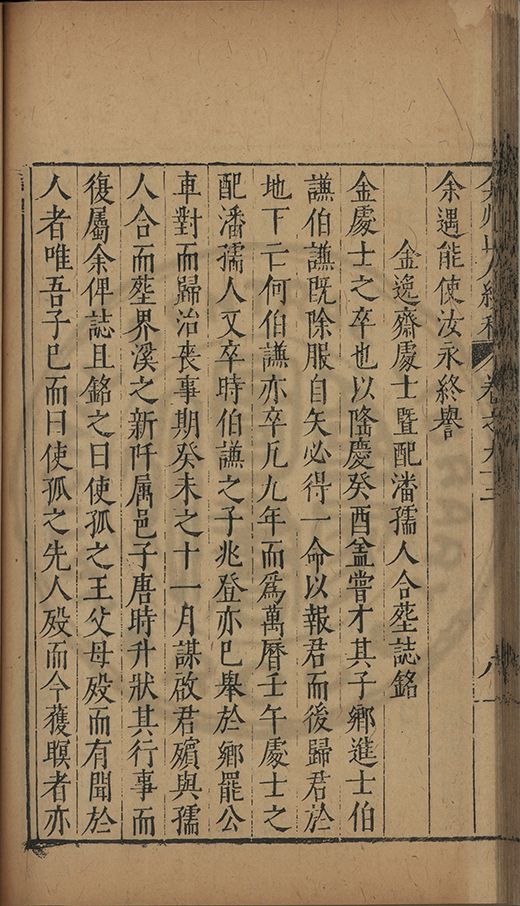 余遇能使汝永終譽
金逸齋處士曁配潘孺人合塟誌銘
金處士之卒也以隆慶癸酉盖嘗才其子鄉進士伯
謙伯謙旣除服自矢必得一命以報君而後歸君於
地下亡何伯謙亦卒凡九年而爲萬曆壬午處士之
配潘孺人又卒時伯謙之子兆登亦已舉於鄉罷公
車對而歸治喪事期癸未之十一月謀啟君殯與孺
人合而塟界溪之新阡属邑子唐時升狀其行事而
復屬余俾誌且銘之曰使孤之王父母歿而有聞於
人者唯吾子已而曰使孤之先人歿而今獲瞑者亦